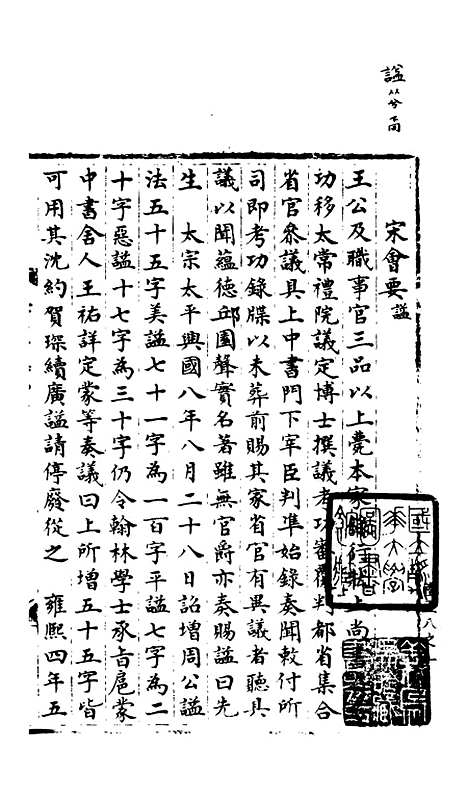 諡 以兮
宋會要 諡
王公及職事官三品以上薨本家錄行狀上尚
功移太常禮院議定博士撰議考功審覆判都省集合
省官參議具上中書門下宰臣判準始錄奏聞敕付所
司即考功錄牒以未葬前賜其家省官有異議者聽具
議以聞蘊德邱園聲實名著雖無官爵亦奏賜諡曰先
生 太宗太平興國八年八月二十八日詔增周公諡
法五十五字美諡七十一字為一百字平諡七字為二
十字惡諡十七字為三十字仍令翰林學士承旨扈蒙
中書舍人王祐詳定蒙等奏議曰上所增五十五字皆
可用其沈約賀琛續廣諡請停廢從之 雍熙四年五